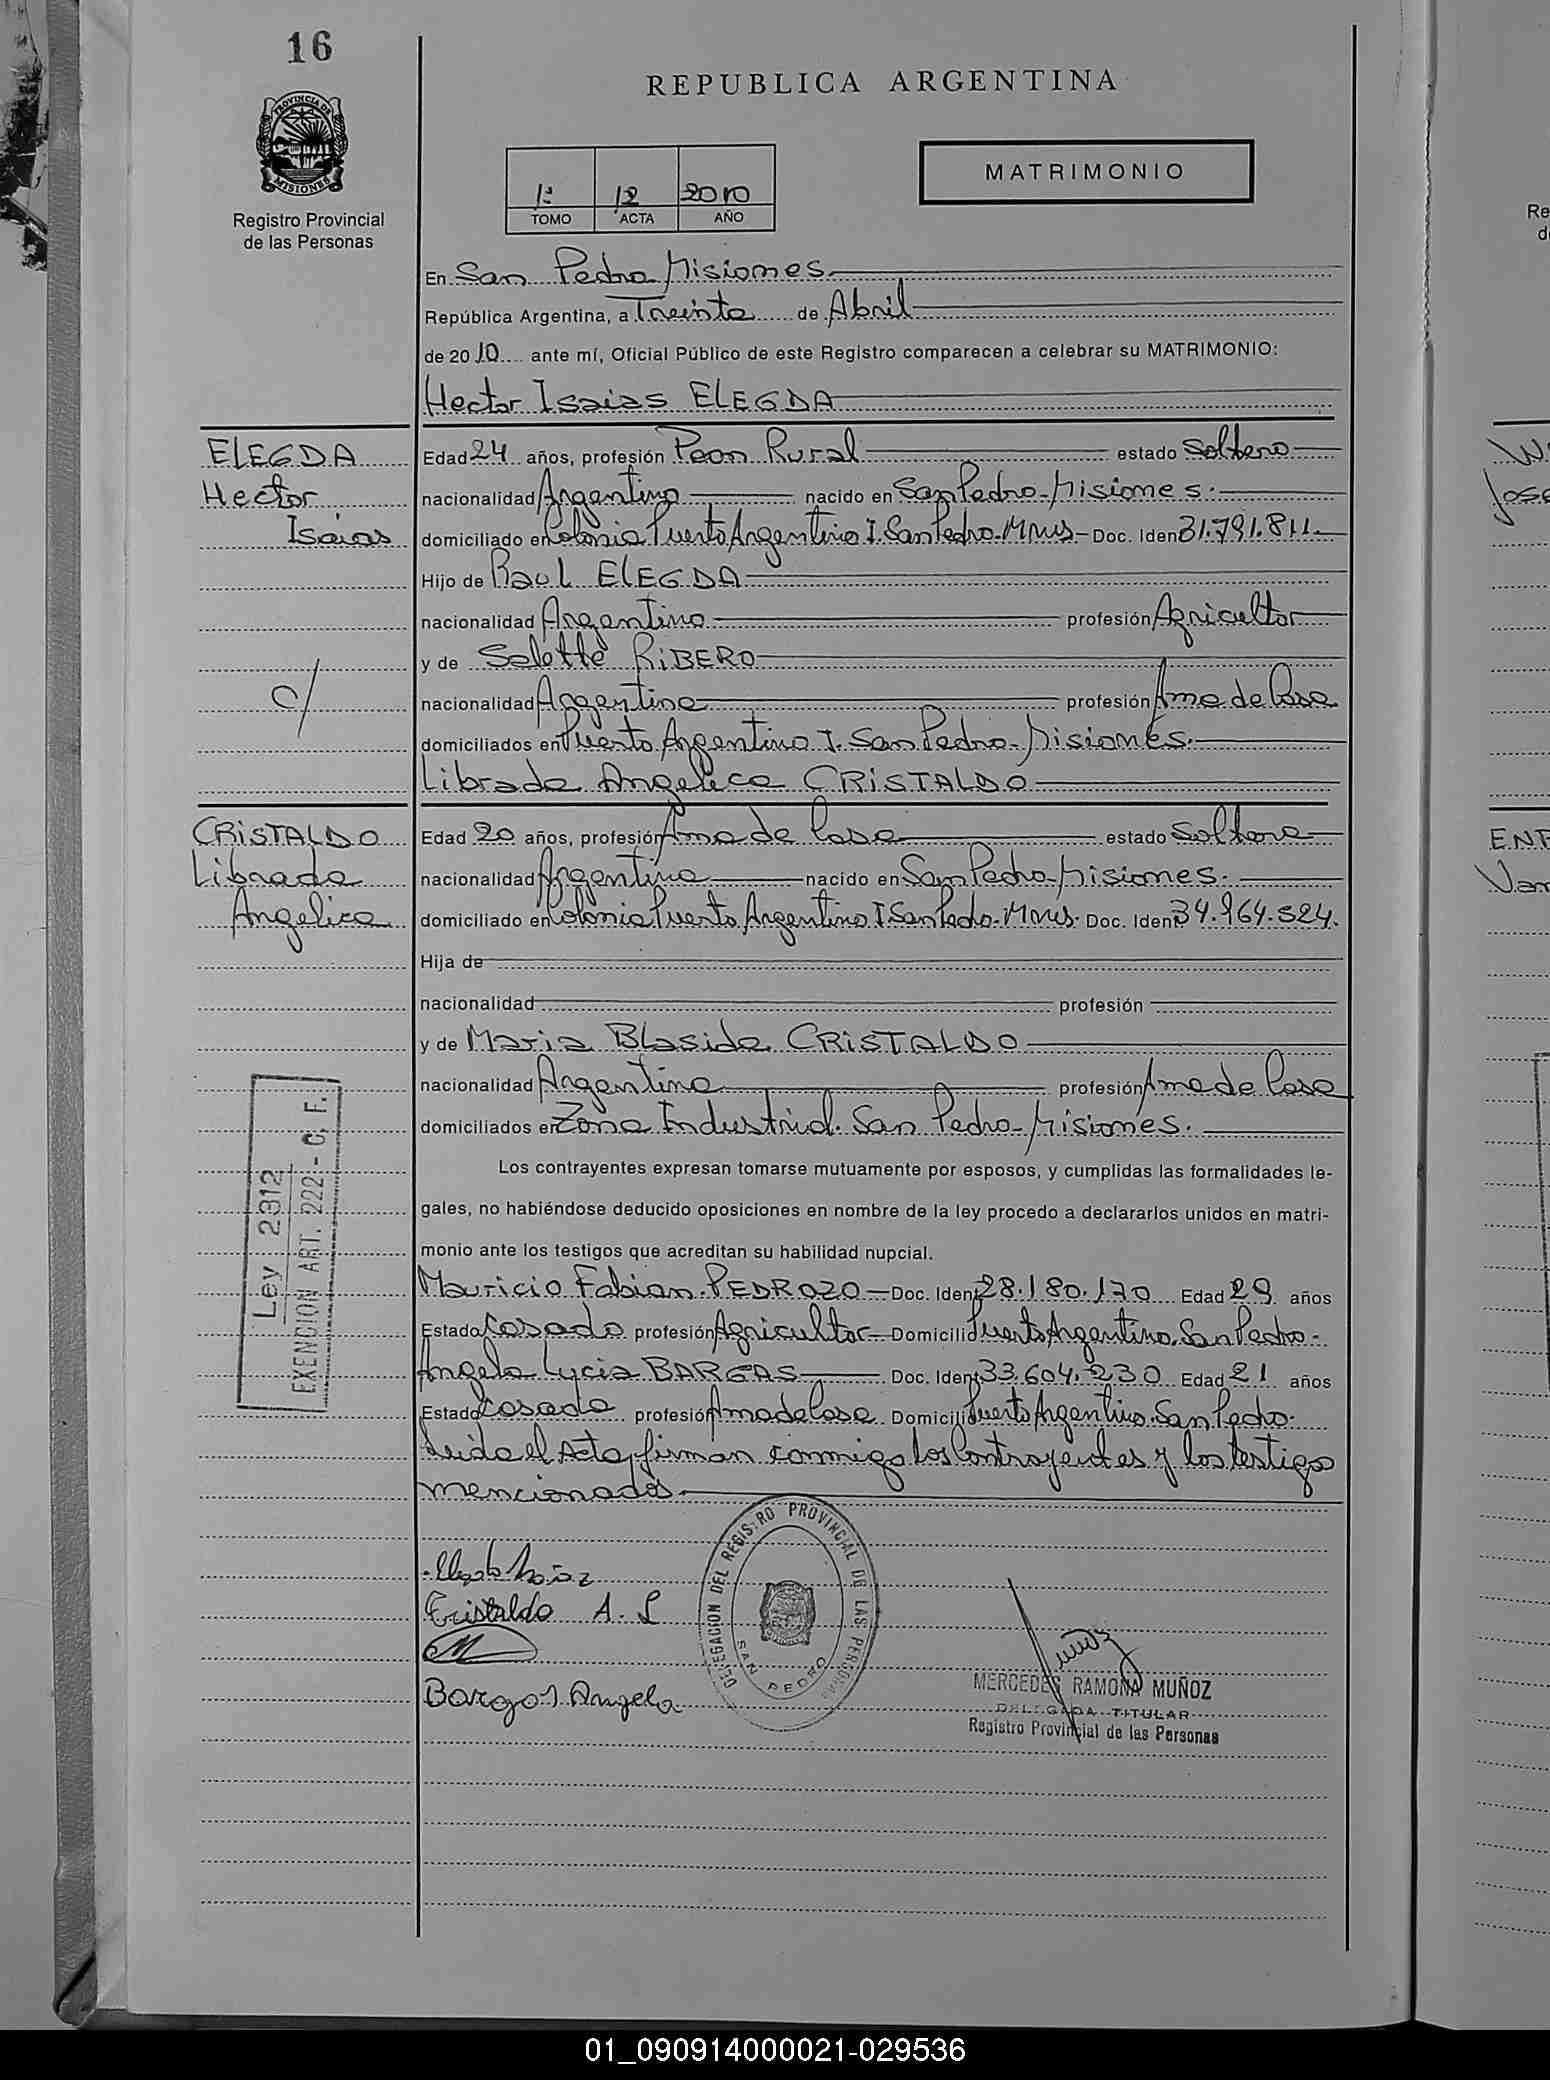 16
REPUBLICA ARGENTINA
PROVINCIA DE
MISIONES
Registro Provincial
de las Personas
1º 12 2010
TOMO ACTA AÑO
MATRIMONIO
En San Pedro Misiones
República Argentina, a Treinta de Abril
de 2010 ante mí, Oficial Público de este Registro comparecen a celebrar su MATRIMONIO:
Hector Isaias ELEGDA
ELEGDA
Hector
Isaias
Edad 24 años, profesión Peon Rural estado Soltero
nacionalidad Argentino nacido en San Pedro-Misiones.
domiciliado en Colonia Puerto Argentino I. San Pedro-Mnes- Doc. Iden 31.791.811.-
Hijo de Raul ELEGDA
nacionalidad Argentino profesión Agricultor
y de Salette RIBERO
c/
nacionalidad Argentina profesión Ama de Casa
domiciliados en Puerto Argentino I. San Pedro-Misiones.
Librada Angelica CRISTALDO
CRISTALDO
Librada
Angelica
Edad 20 años, profesión Ama de Casa estado Soltera
nacionalidad Argentina nacido en San Pedro-Misiones.
domiciliado en Colonia Puerto Argentino I San Pedro-Mnes. Doc. Iden 34.964.524.
Hija de
nacionalidad profesión
y de Maria Blasida CRISTALDO
nacionalidad Argentina profesión Ama de Casa
domiciliados en Zona Industrial. San Pedro-Misiones.
Ley 2312
EXENCION ART. 222 - C. F.
Los contrayentes expresan tomarse mutuamente por esposos, y cumplidas las formalidades le-
gales, no habiéndose deducido oposiciones en nombre de la ley procedo a declararlos unidos en matri-
monio ante los testigos que acreditan su habilidad nupcial.
Mauricio Fabian PEDROZO Doc. Ident 28.180.170 Edad 29 años
Estado Casado profesión Agricultor Domicili Puerto Argentino. San Pedro-
Angela Lycia BARGAS Doc. Ident 33.604.230 Edad 21 años
Estado Casada profesión Ama de Casa Domicili Puerto Argentino. San Pedro.
Leida el Acta, firman conmigo los Contrayentes y los testigos
mencionados
Cristaldo A. L
Bargas Angela
DELEGACION DEL REGISTRO PROVINCIAL DE LAS PERSONAS
SAN PEDRO
MERCEDES RAMONA MUÑOZ
DELEGADA TITULAR
Registro Provincial de las Personas
Re
d
Jose
ENR
Van
01_090914000021-029536